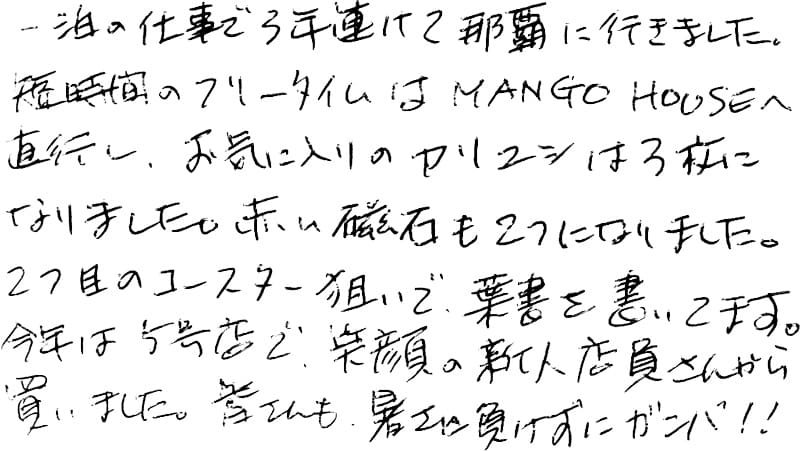 一泊の仕事で3年連けて那覇に行きました。
短時間のフリータイムはMANGO HOUSEへ
直行し、お気に入りのカリユシは3枚に
なりました。赤い磁石も2つになりました。
2つ目のコースター狙いで、葉書を書いてます。
今年は5号店で、笑顔の新人店員さんから
買いました。皆さんも、暑さに負けずにガンバ!!